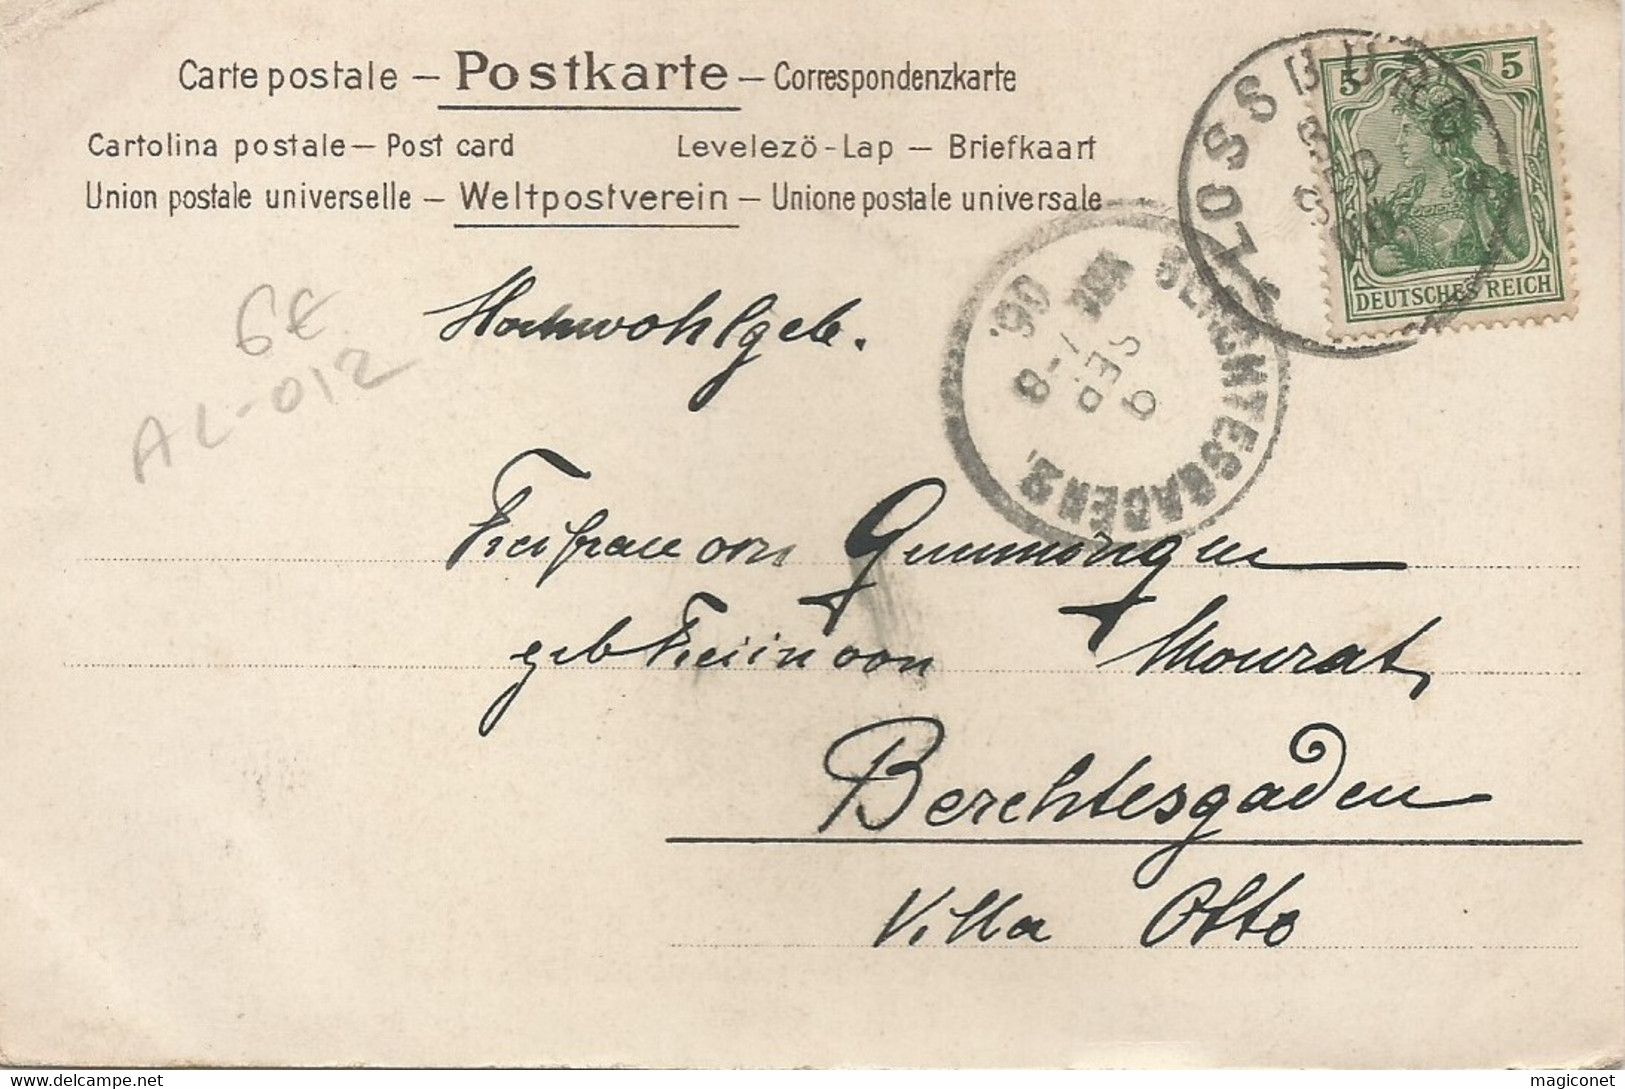 Carte postale – Postkarte – Correspondenzkarte
Cartolina postale – Post card Levelezö-Lap – Briefkaart
Union postale universelle – Weltpostverein – Unione postale universale
5 5
DEUTSCHES REICH
LOSSBURG
8 SEP
BERCHTESGADEN 2.
9 SEP
7-8
'06.
6€
AL-012
Hochwohlgeb.
Freifrau von
geb Freiin von
Berchtesgaden
Villa Otto
magiconet